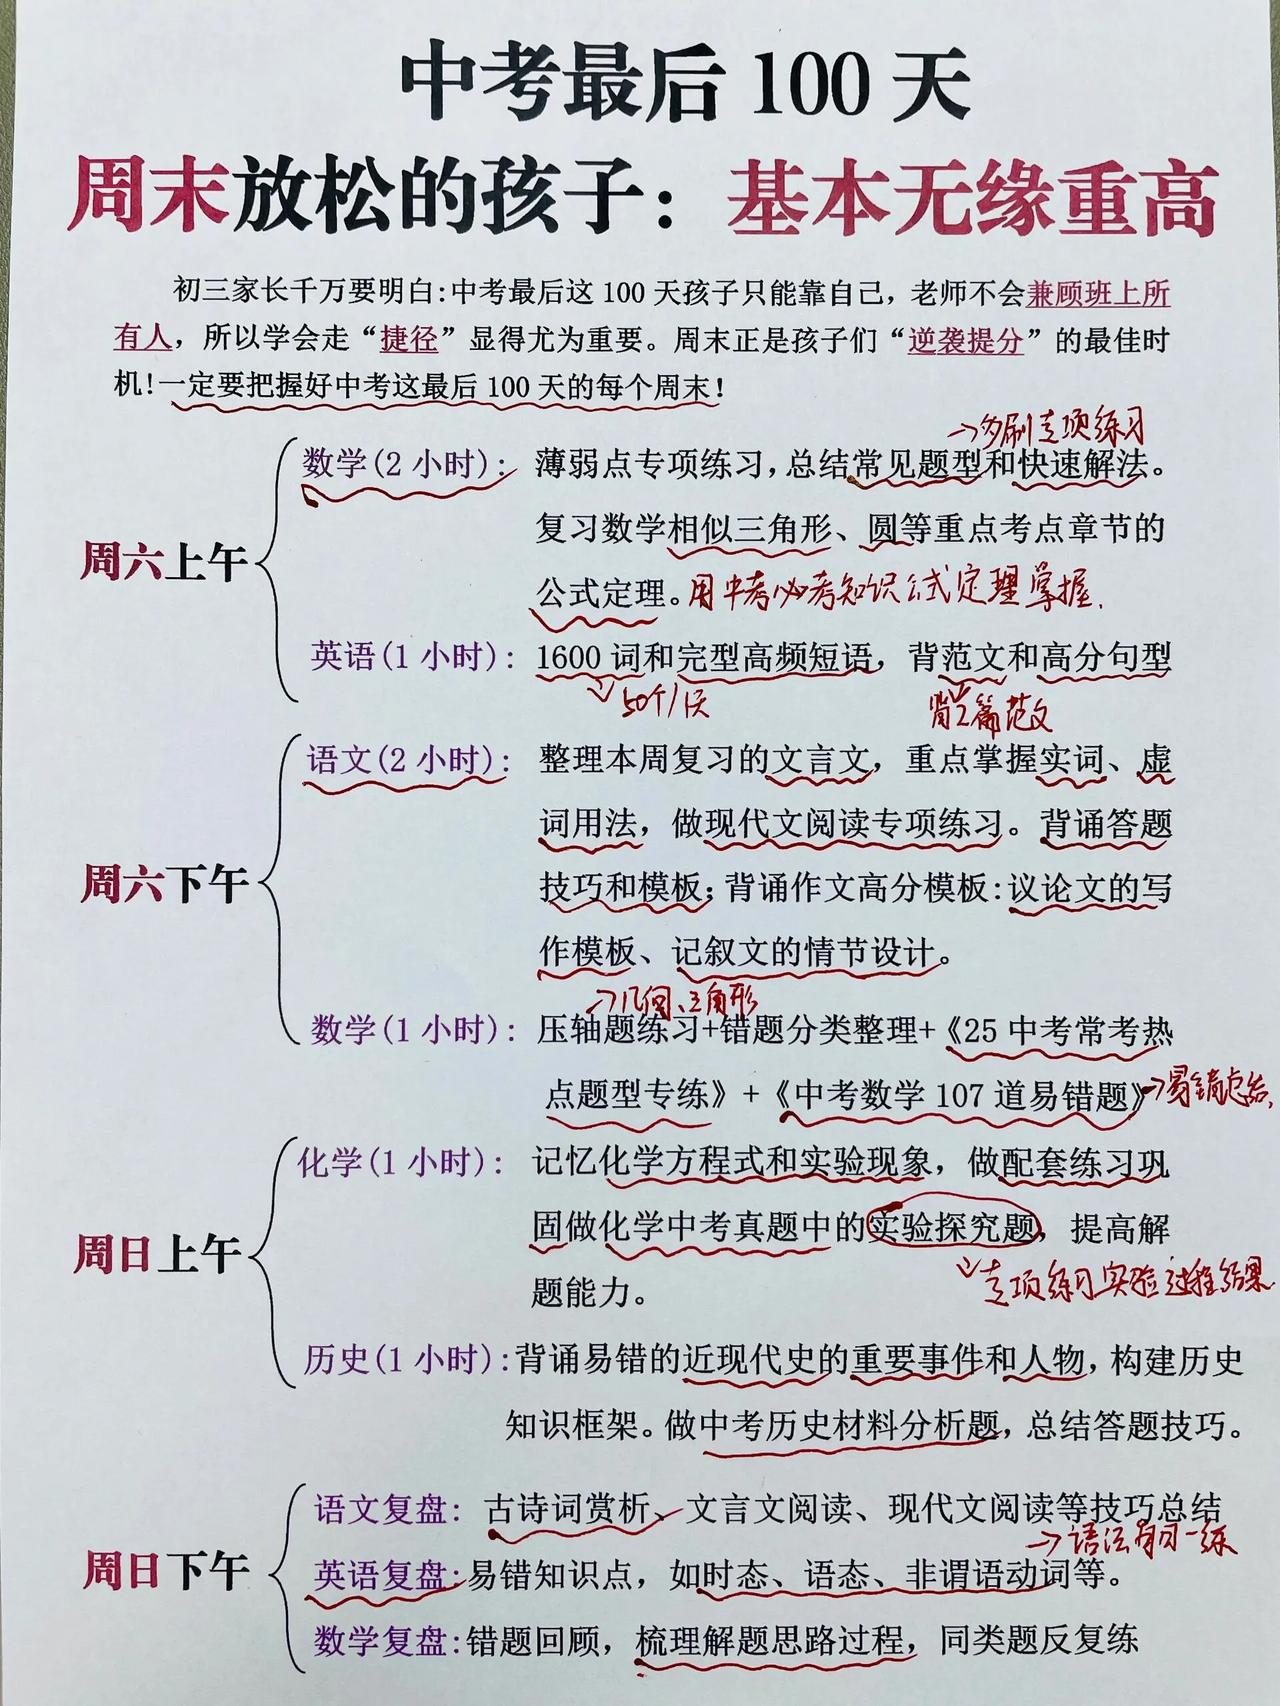 中考最后 100 天
周末放松的孩子：基本无缘重高
初三家长千万要明白：中考最后这 100 天孩子只能靠自己，老师不会兼顾班上所
有人，所以学会走“捷径”显得尤为重要。周末正是孩子们“逆袭提分”的最佳时
机！一定要把握好中考这最后 100 天的每个周末！
→多刷专项练习
周六上午
数学(2 小时)： 薄弱点专项练习，总结常见题型和快速解法。
复习数学相似三角形、圆等重点考点章节的
公式定理。用中考必考知识公式定理掌握.
英语(1 小时)： 1600 词和完型高频短语，背范文和高分句型
50个/天
背2篇范文
周六下午
语文(2 小时)： 整理本周复习的文言文，重点掌握实词、虚
词用法，做现代文阅读专项练习。背诵答题
技巧和模板；背诵作文高分模板：议论文的写
作模板、记叙文的情节设计。
→几何、三角形
数学(1 小时)： 压轴题练习+错题分类整理+《25 中考常考热
点题型专练》+《中考数学 107 道易错题》→易错总结.
周日上午
化学(1 小时)： 记忆化学方程式和实验现象，做配套练习巩
固做化学中考真题中的实验探究题，提高解
题能力。
专项练习实验过程结果
历史(1 小时)：背诵易错的近现代史的重要事件和人物，构建历史
知识框架。做中考历史材料分析题，总结答题技巧。
周日下午
语文复盘： 古诗词赏析、文言文阅读、现代文阅读等技巧总结
→语法每日一练
英语复盘：易错知识点，如时态、语态、非谓语动词等。
数学复盘：错题回顾，梳理解题思路过程，同类题反复练